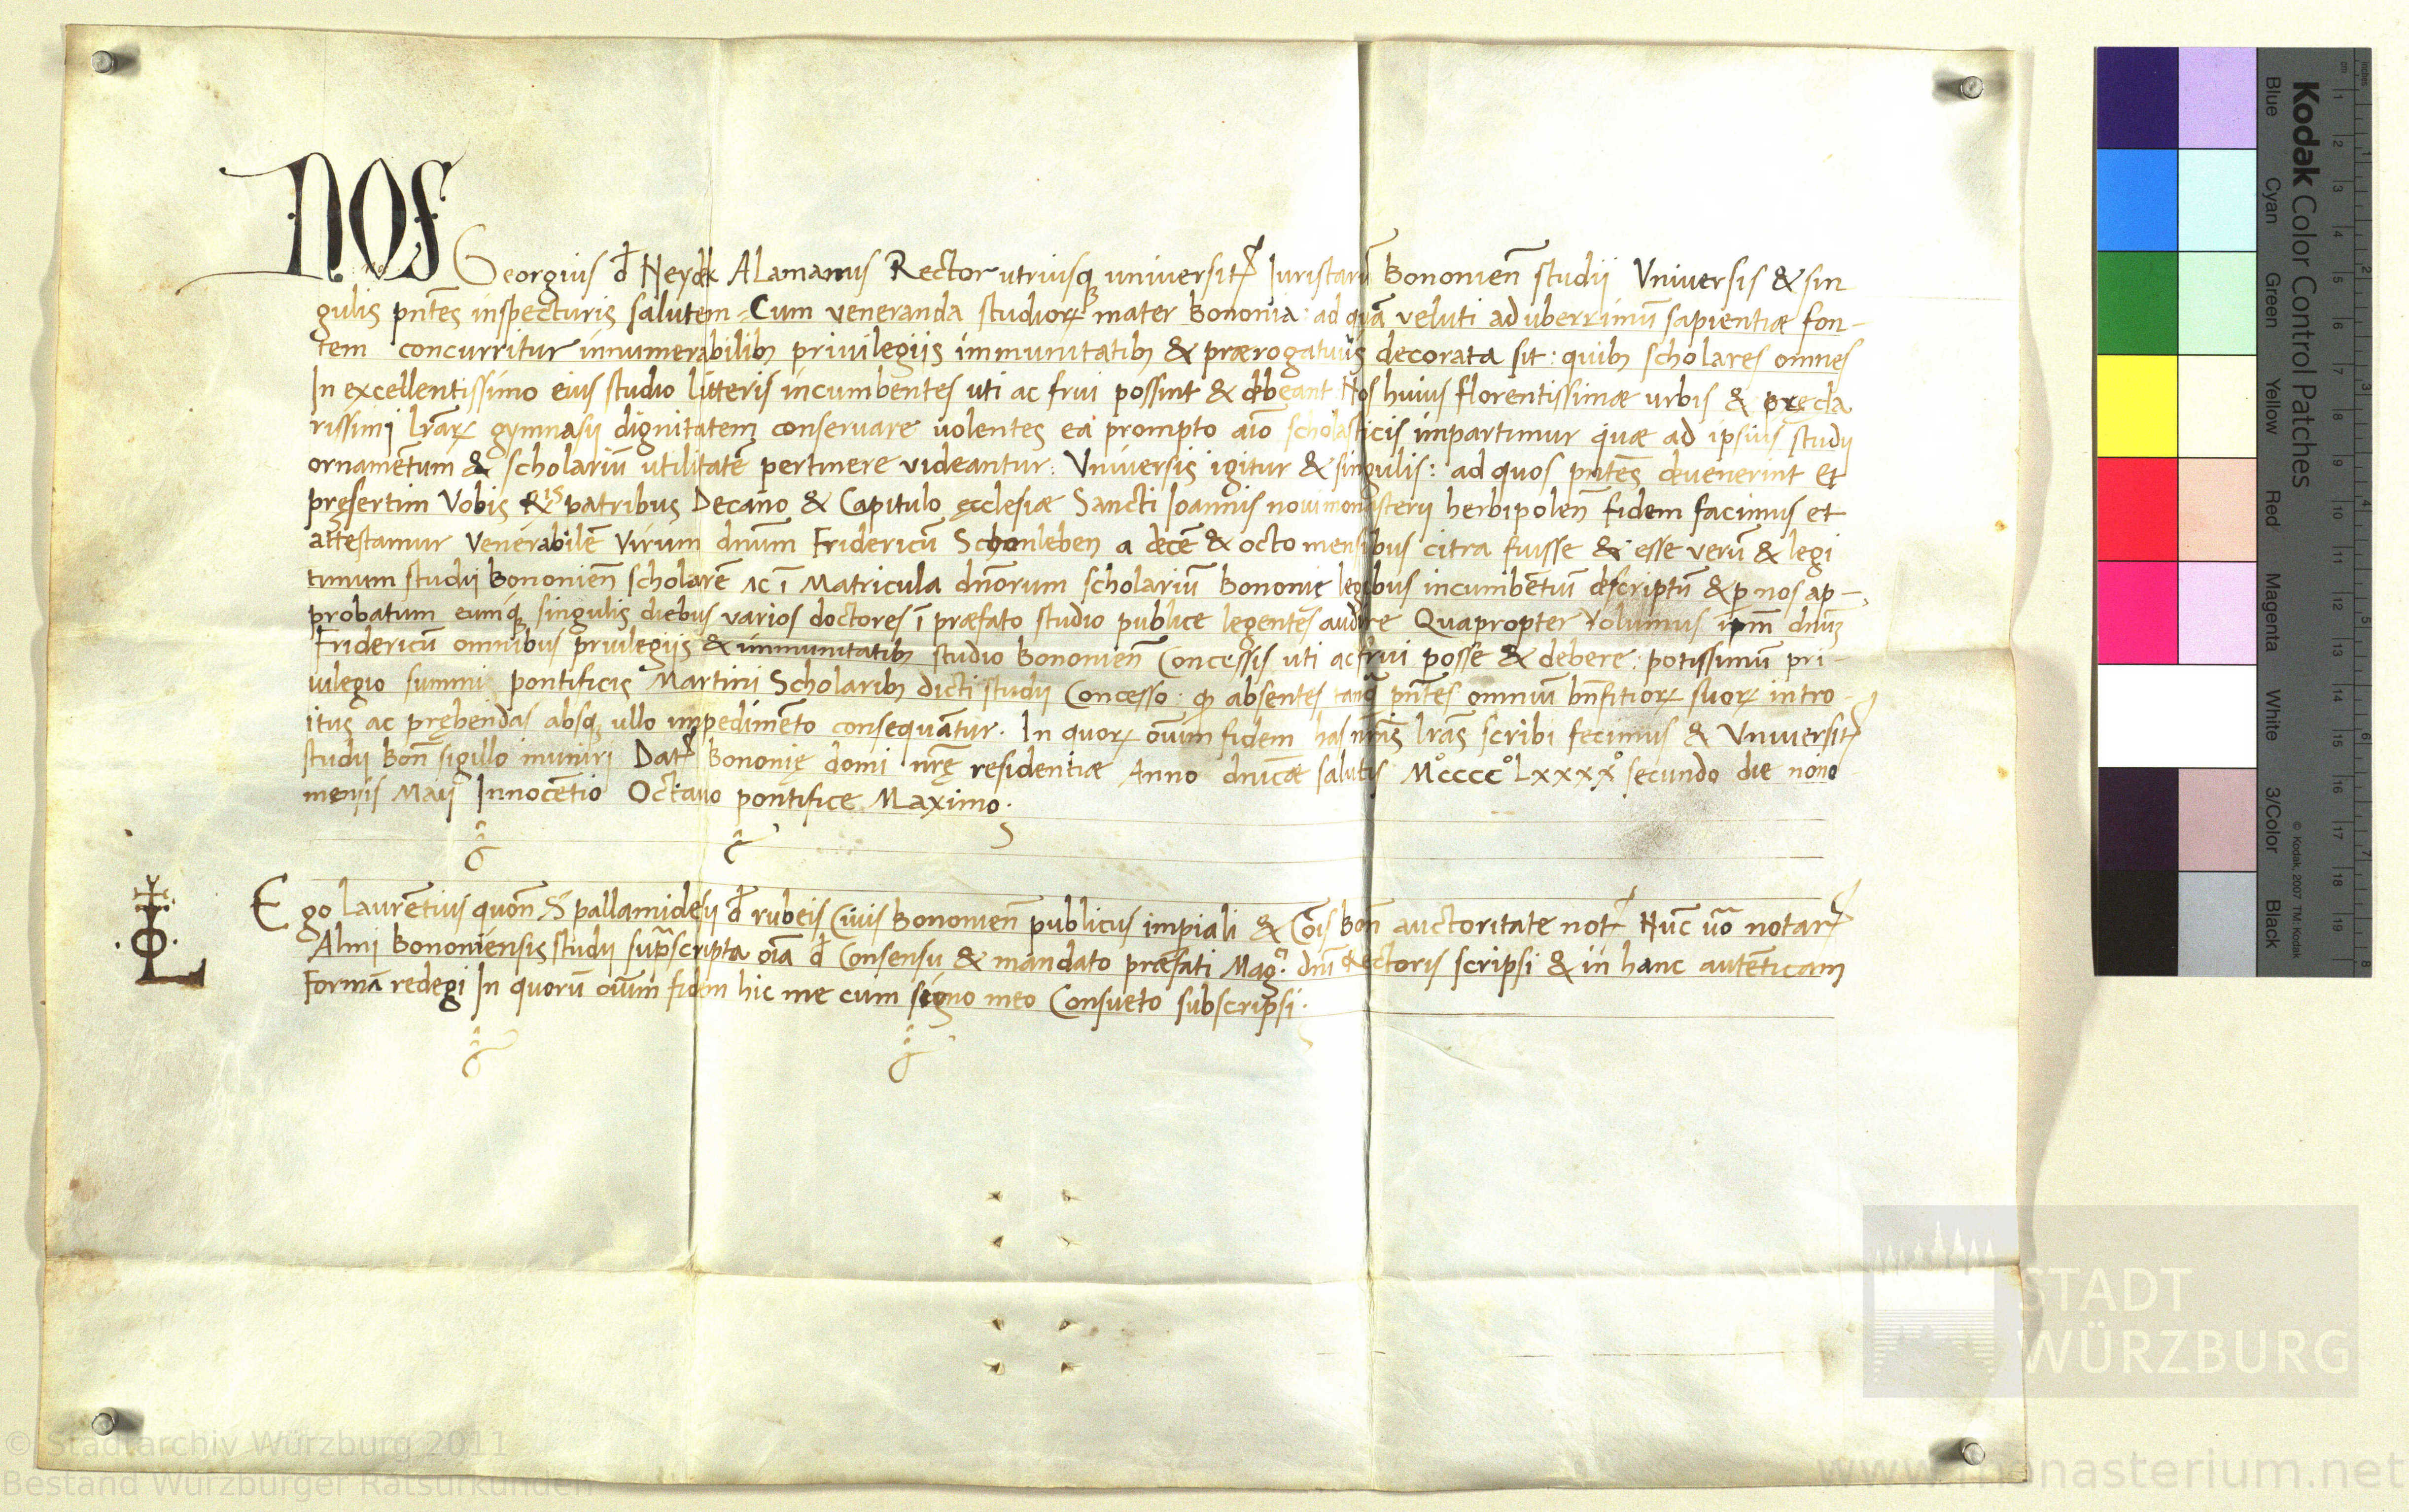 NOS Georgius đ Neydek Alamanus Rector utriusq universit Juristarū Bononień studii Vniuersis & sin
gulis pñtes inspecturis salutem = Cum veneranda studioꝝ mater Bononia: ad quā veluti ad uberrimū sapientiæ fon-
tem concurritur innumerabilibꝫ priuilegijs immunitatibꝫ & prærogatiuis decorata sit: quibꝫ scholares omnes
In excellentissimo eius studio litteris incumbentes uti ac frui possint & debeant Nos huius florentissimæ urbis & præcla
rissimi lrāꝝ gymnasij dignitatem conseruare uolentes ea prompto aīo scholasticis impartimur quæ ad ipsius studij
ornamentum & scholariū utilitatē pertinere videantur: Vniuersis igitur & singulis: ad quos pñtes deuenerint et
pręsertim Vobis Ris patribus Decano & Capitulo ęcclesiæ Sancti Joannis noui monasterij herbipoleñ fidem facimus et
attestamur Venerabilē Virum dñum Fridericū Schonleben a decē & octo mensibus citra fuisse & esse verū & legi
timum studij Bononień scholarē ac ī Matricula dñorum scholariū Bononię legibus incumbētiū descriptū & ꝑ nos ap-
probatum eumqꝫ singulis diebus varios doctores ī præfato studio publice legentes audire Quapropter Volumus ipm̄ dñuꝫ
Fridericū omnibus priuilegijs & immunitatibꝫ studio Bononień Concessis uti ac frui posse & debere: potissimū pri-
uilegio summi pontificis Martini Scholaribꝫ dicti studij Concesso: ꝙ absentes tanꝗ̄ pñtes omniū bñfitioꝝ suoꝝ intro-
itus ac prębendas absqꝫ ullo impedimēto consequātur. In quoꝝ oīum fidem has nr̄as lrās scribi fecimus & Vniuersit
studij Boñ sigillo muniri Dat Bononię domi nr̄ę residentiæ Anno dnicæ salutis M°cccc°Lxxxx° secundo die nono
mensis Maij Innocētio Octauo pontifice Maximo.
Ego Laurētius quoñ S pallamidesij đ rubeis Ciuis Bononień publicus imꝑiali & Cōis Boñ auctoritate not Nūc u̅o notar
Almi Bononiensis studij supͣscripta oīa đ Consensu & mandato præfati Mag.ci dñi Rectoris scripsi & in hanc autēticam
Formā redegi In quorū oīum fidem hic me cum signo meo Consueto subscripsi.
Kodak Color Control Patches
Blue Cyan Green Yellow Red Magenta White 3/Color Black
© Kodak, 2007 TM: Kodak
STADT
WÜRZBURG
© Stadtarchiv Würzburg 2011
Bestand Würzburger Ratsurkunden
www.monasterium.net